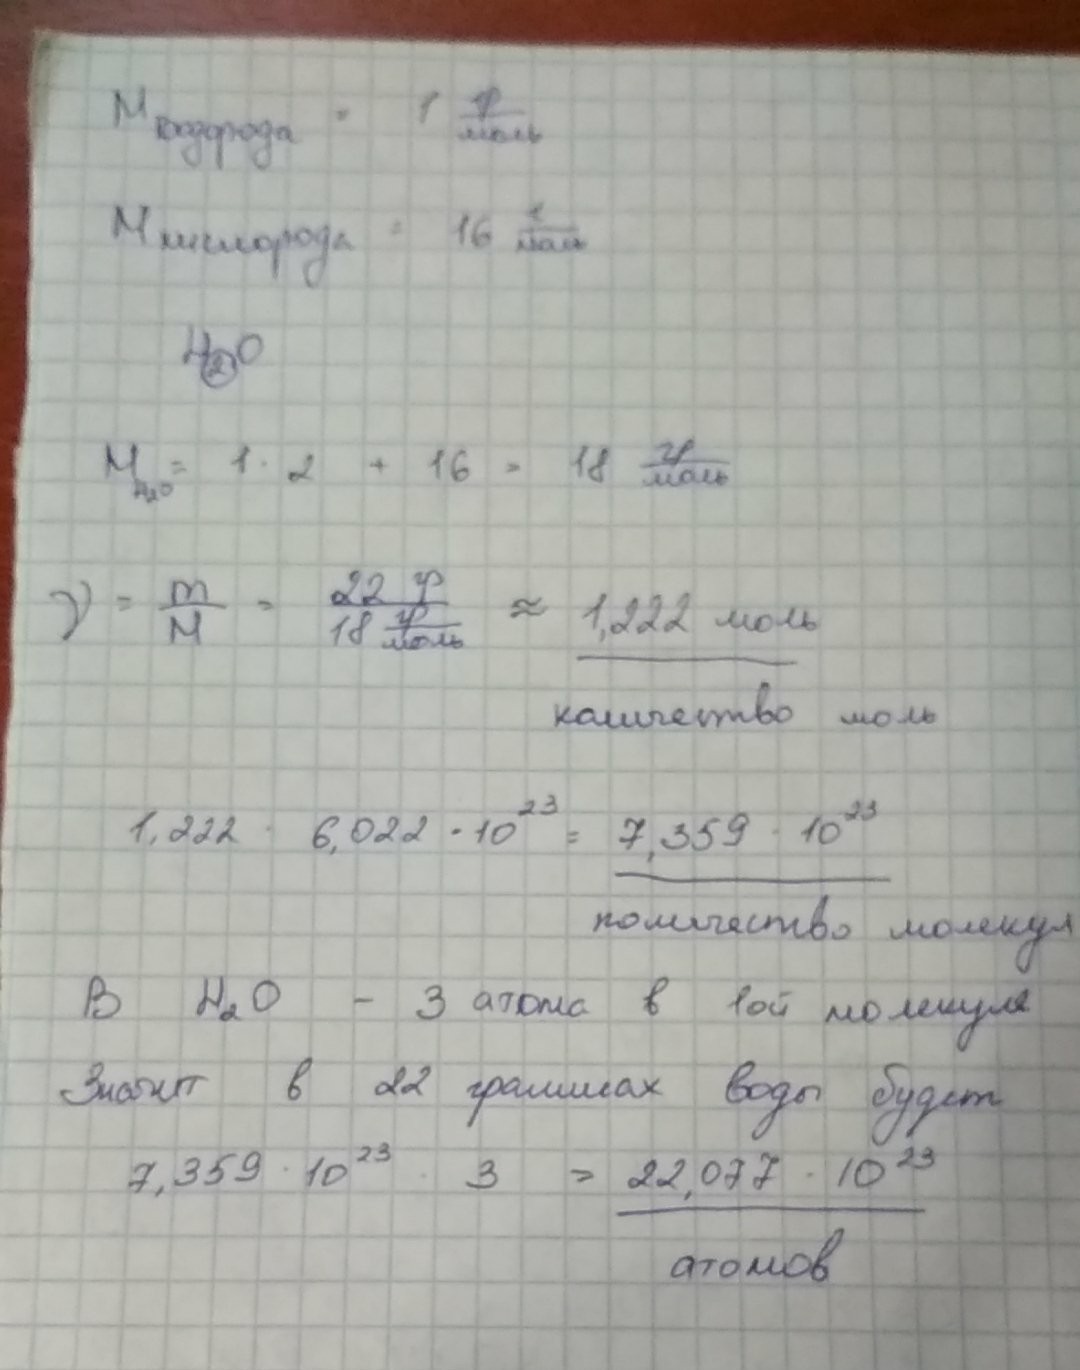 M водорода = 1 гр/моль
M кислорода = 16 г/моль
H₂O
M H₂O = 1 · 2 + 16 = 18 гр/моль
ν = m/M = 22 гр / 18 гр/моль ≈ 1,222 моль
количество моль
1,222 · 6,022 · 10²³ = 7,359 · 10²³
количество молекул
В H₂O - 3 атома в 1ой молекуле
Значит в 22 граммах воды будет
7,359 · 10²³ · 3 = 22,077 · 10²³
атомов